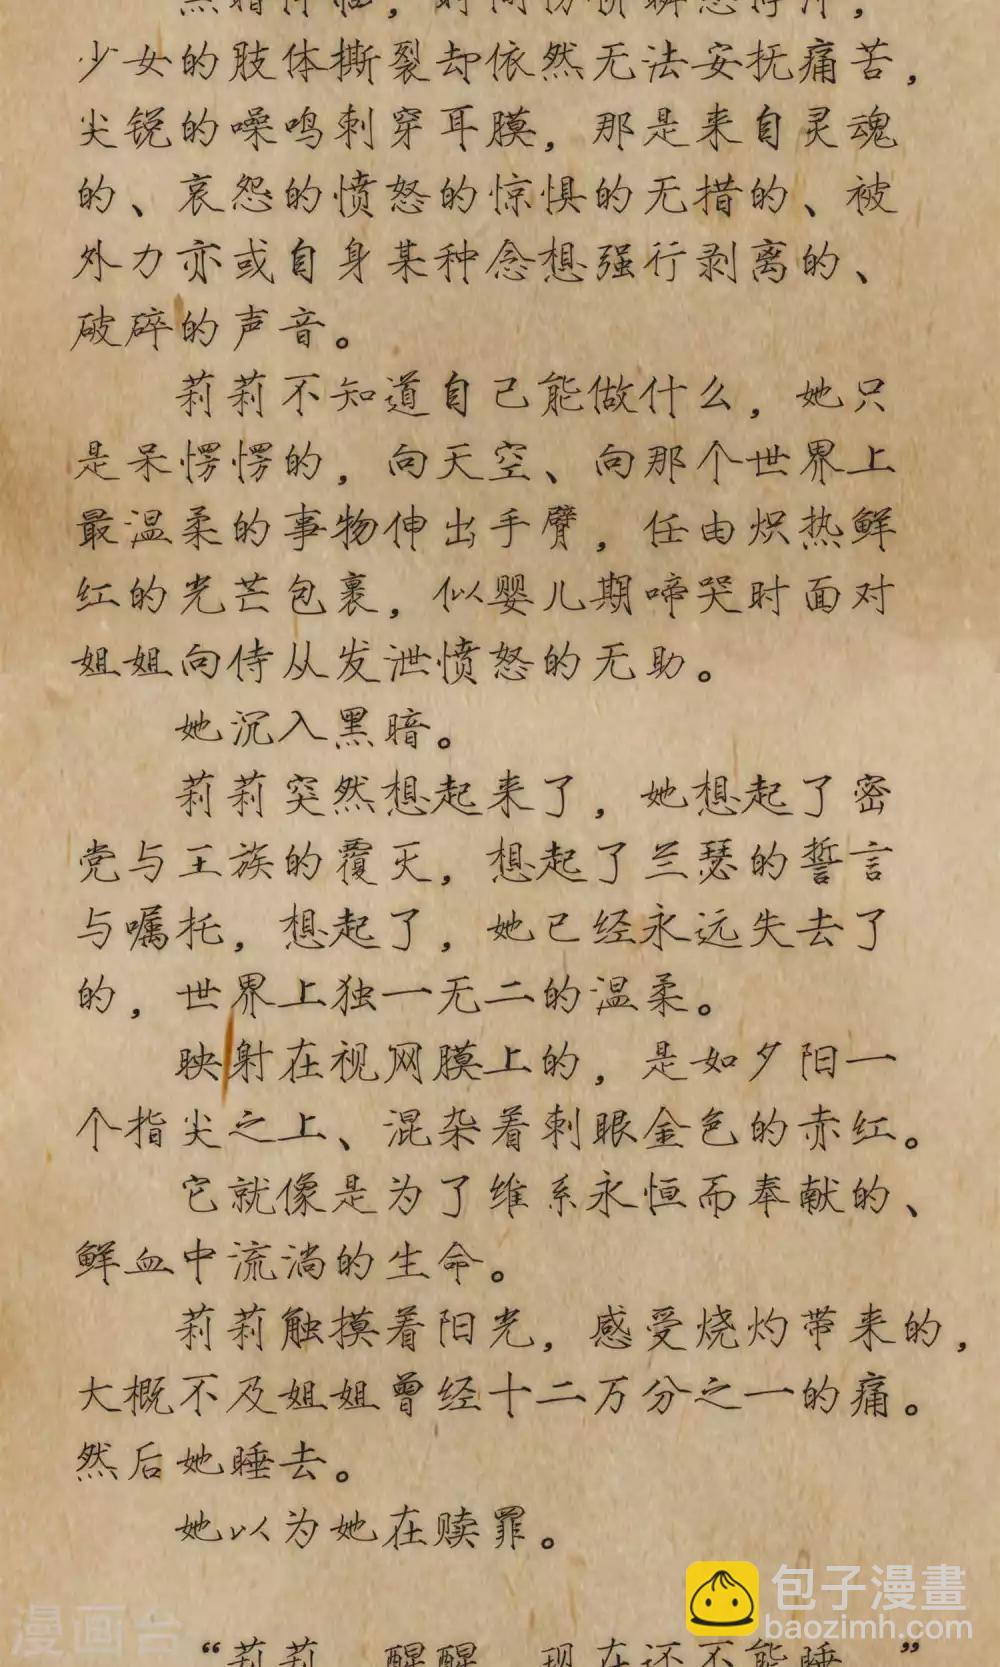 黑暗降临，时间仿佛瞬息停斤，
少女的肢体撕裂却依然无法安抚痛苦，
尖锐的噪鸣刺穿耳膜，那是来自灵魂
的、哀怨的愤怒的惊惧的无措的、被
外力亦或自身某种念想强行剥离的、
破碎的声音。
莉莉不知道自己能做什么，她只
是呆愣愣的，向天空、向那个世界上
最温柔的事物伸出手臂，任由炽热鲜
红的光芒包裹，似婴儿期啼哭时面对
姐姐向侍从发泄愤怒的无助。
她沉入黑暗。
莉莉突然想起来了，她想起了密
党与王族的覆灭，想起了兰瑟的誓言
与嘱托，想起了，她已经永远失去了
的，世界上独一无二的温柔。
映射在视网膜上的，是如夕阳一
个指尖之上、混杂着刺眼金色的赤红。
它就像是为了维系永恒而奉献的、
鲜血中流淌的生命。
莉莉触摸着阳光，感受烧灼带来的，
大概不及姐姐曾经十二万分之一的痛。
然后她睡去。
她以为她在赎罪。
“莉莉，醒醒，现在还不能睡。”
包子漫畫
baozimh.com
漫画台